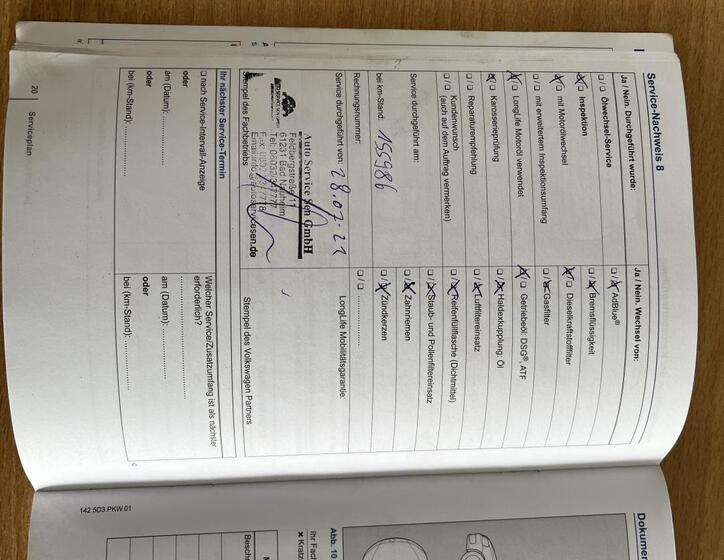 Service-Nachweis 8
Ja / Nein. Durchgeführt wurde:
Ölwechsel-Service
Inspektion
mit Motorölwechsel
mit erweitertem Inspektionsumfang
LongLife Motoröl verwendet
Karosserieprüfung
Reparaturempfehlung
Kundenwunsch
(auch auf dem Auftrag vermerken)
Service durchgeführt am:
bei km-Stand: 155986
Rechnungsnummer:
Service durchgeführt von: 28.07.21
Auto Service Sen GmbH
Feldbergstraße 11
61231 Bad Nauheim
Stempel des Fachbetriebs
Ja / Nein. Wechsel von:
AdBlue®
Bremsflüssigkeit
Dieselkraftstofffilter
Gasfilter
Getriebeöl: DSG®, ATF
Haldexkupplung: Öl
Luftfiltereinsatz
Reifenfüllflasche (Dichtmittel)
Staub- und Pollenfiltereinsatz
Zahnriemen
Zündkerzen
LongLife Mobilitätsgarantie:
Stempel des Volkswagen Partners
Ihr nächster Service-Termin
nach Service-Intervall-Anzeige
oder
am (Datum):
oder
bei (km-Stand):
Welcher Service/Zusatzumfang ist als nächster
erforderlich?
am (Datum):
oder
bei (km-Stand):
20 Serviceplan
142.5D3.PKW.01
Abb. 10